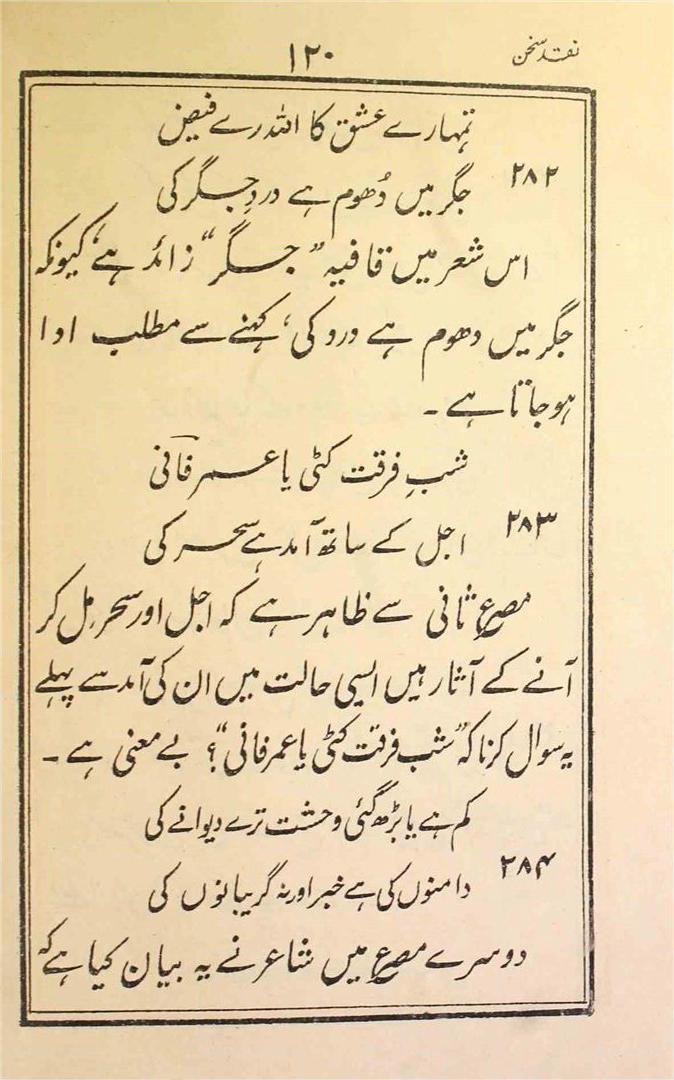 نقد سخن
۱۲۰
تمہارے عشق کا اللہ رے فیض
۲۸۲
جگر میں دُھوم ہے دردِ جگر کی
اس شعر میں قافیہ ”جگر“ زائد ہے، کیونکہ
جگر میں دھوم ہے درو کی، کہنے سے مطلب ادا
ہو جاتا ہے ۔
شبِ فرقت کٹی یا عمر فانی
۲۸۳
اجل کے ساتھ آمد ہے سحر کی
مصرعِ ثانی سے ظاہر ہے کہ اجل اور سحر مِل کر
آنے کے آثار ہیں ایسی حالت میں ان کی آمد سے پہلے
یہ سوال کرنا کہ ”شب فرقت کٹی یا عمر فانی“؟ بے معنی ہے ۔
کم ہے یا بڑھ گئی وحشت ترے دیوانے کی
۲۸۴
دامنوں کی ہے خبر اور نہ گریبانوں کی
دوسرے مصرع میں شاعر نے یہ بیان کیا ہے کہ